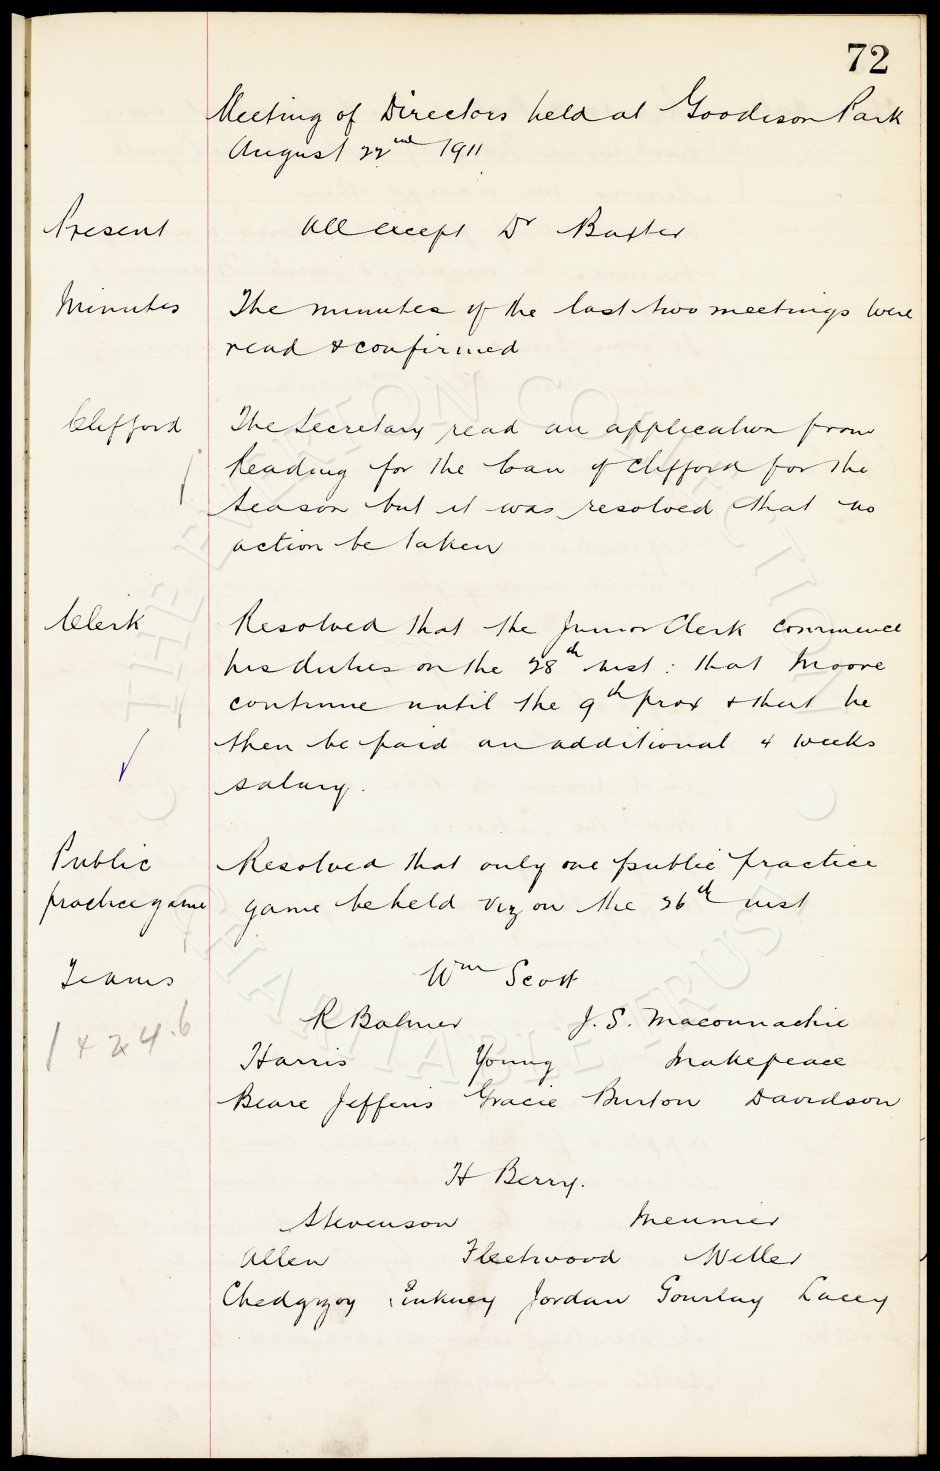 72
Meeting of Directors held at Goodison Park
August 22nd 1911
Present All except Dr Baxter
Minutes The minutes of the last two meetings were
read & confirmed
Clifford The Secretary read an application from
Reading for the loan of Clifford for the
Season but it was resolved that no
action be taken
Clerk Resolved that the Junior Clerk commence
his duties on the 28th inst: that Moore
continue until the 9th prox & that he
then be paid an additional 4 weeks
salary.
Public Resolved that only one public practice
practice game game be held viz on the 26th inst
Teams Wm Scott
R Balmer J. S. Maconnachie
Harris Young Makepeace
Beare Jefferis Gracie Burton Davidson
H Berry.
Stevenson Meunier
Allen Fleetwood Weller
Chedgzoy Pinkney Jordan Gourlay Lacey
THE EVERTON COLLECTION
CHARITABLE TRUST